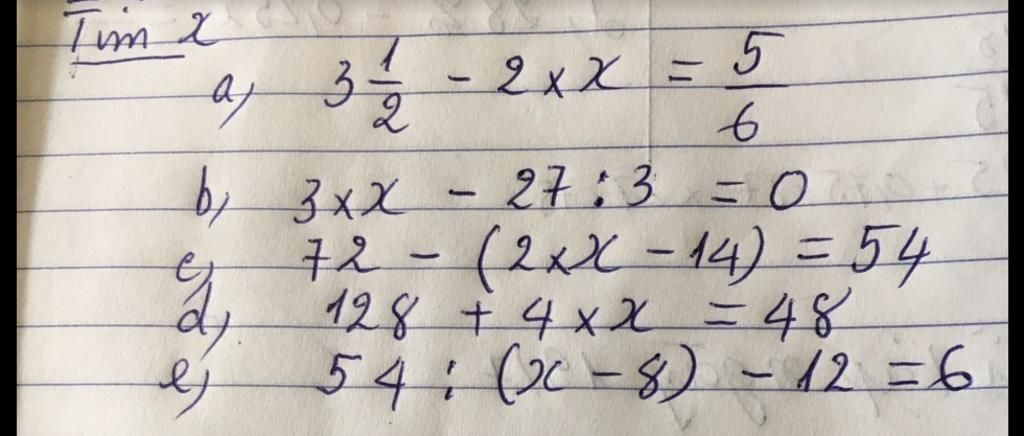 Tìm x
a, 3 1/2 - 2 × x = 5/6
b, 3 × x - 27 : 3 = 0
c, 72 - (2 × x - 14) = 54
d, 128 + 4 × x = 48
e, 54 : (x - 8) - 12 = 6